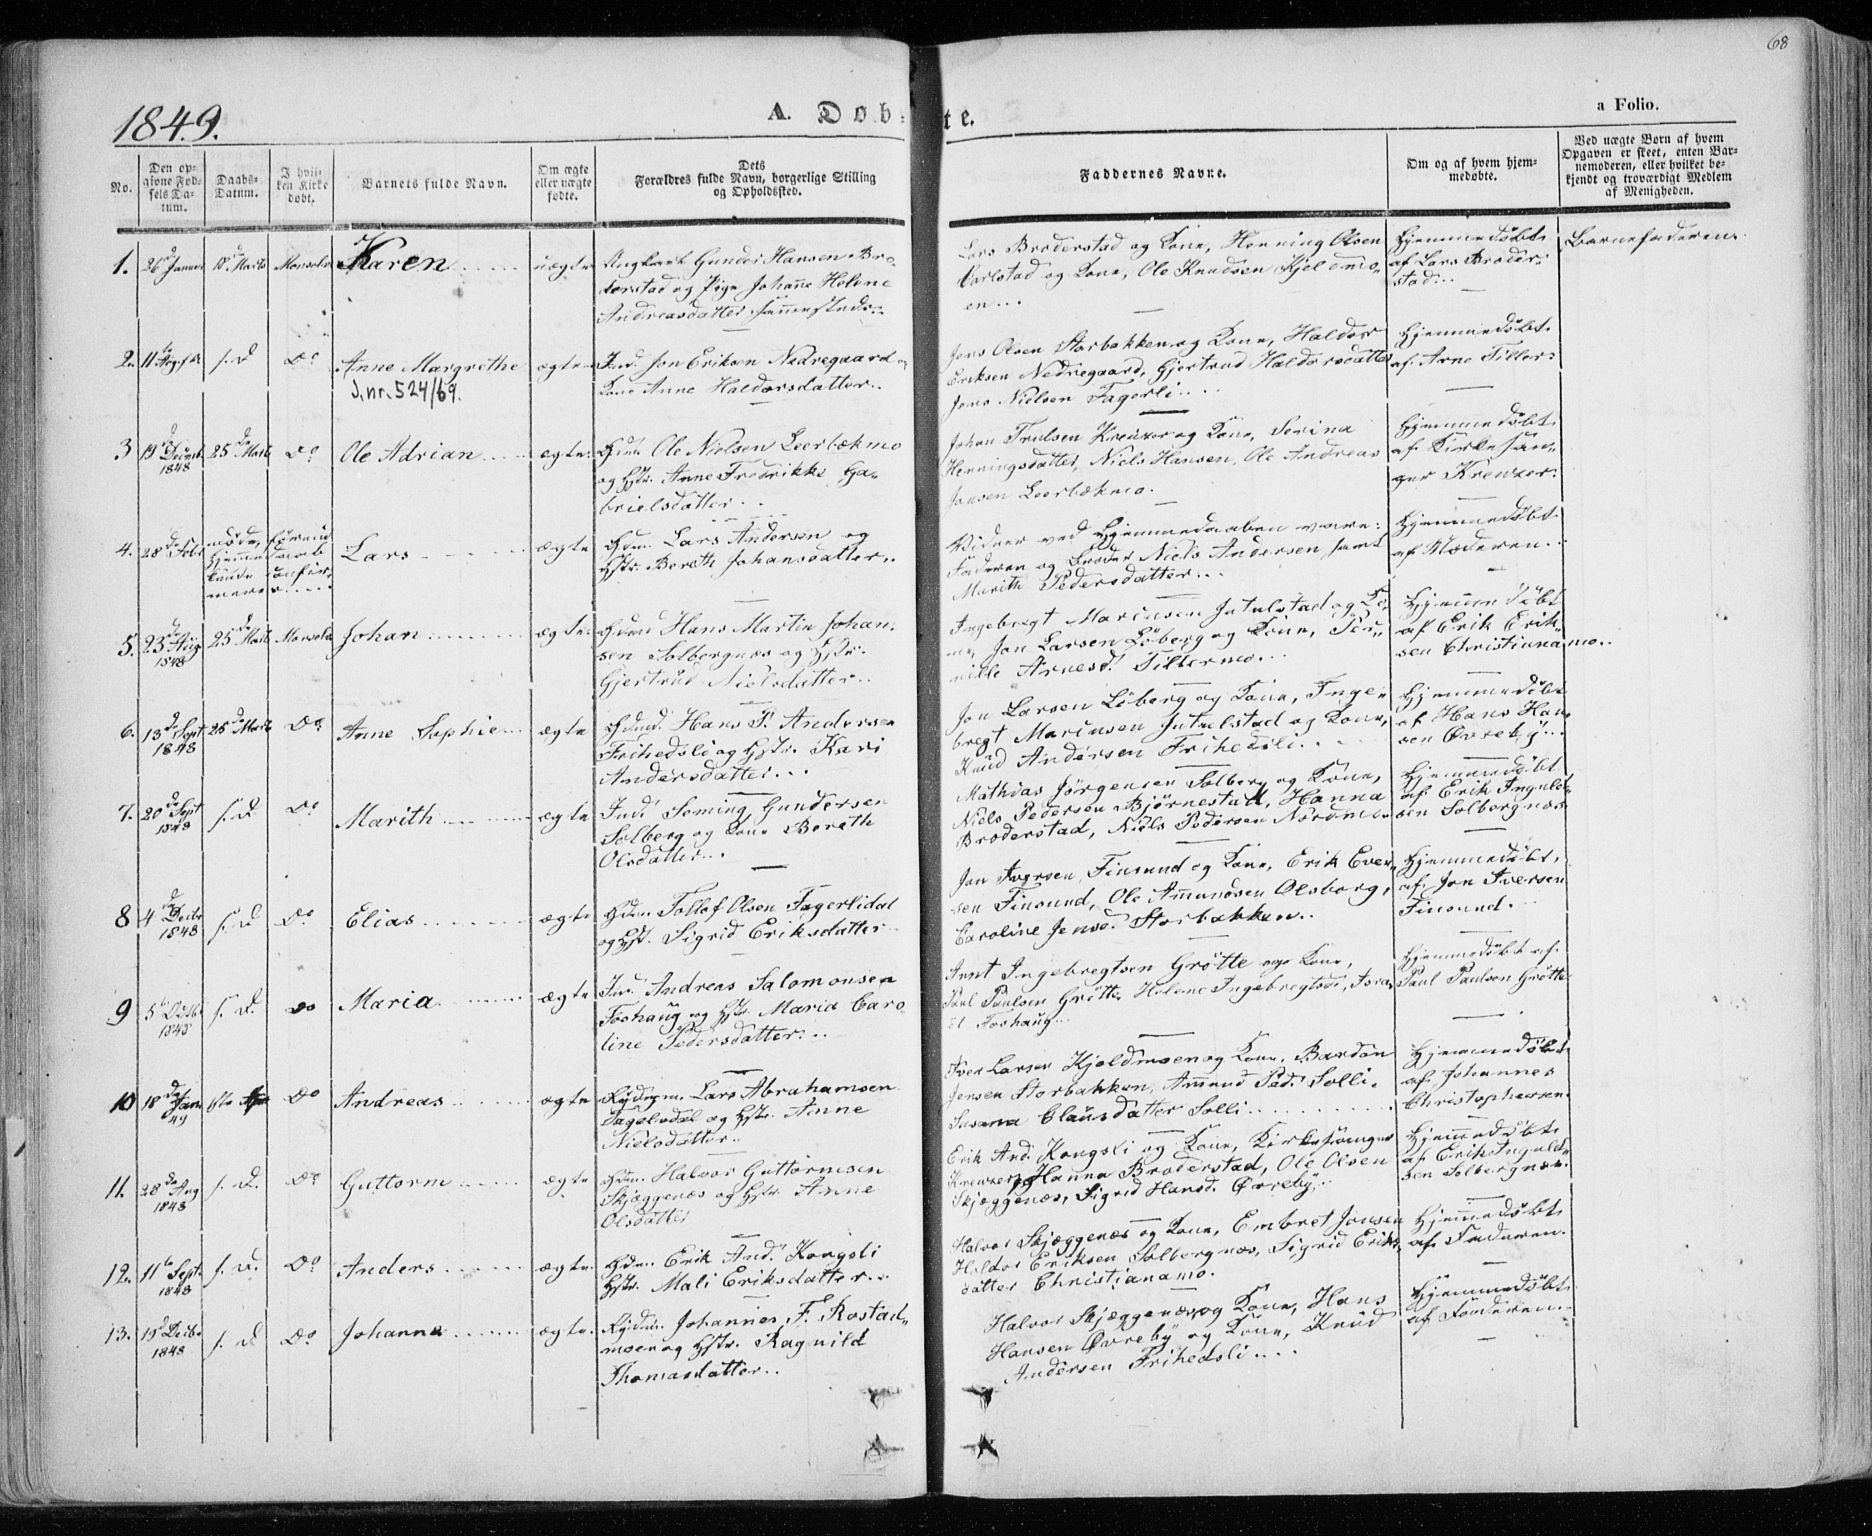 68
1849.
A. Døb-
te.
a Folio.
No.
Den op-
givne Fød-
sels Da-
tum.
Daabs-
Datum.
I hvil-
ken Kirke
døbt.
Barnets fulde Navn.
Om ægte
eller uægte
fødte.
Dets
Forældres fulde Navn, borgerlige Stilling
og Opholdssted.
Faddernes Navne.
Om og af hvem hjem-
medøbte.
Ved uægte Børn af hvem
Opgaven er skeet, enten Bar-
nemoderen, eller hvilket be-
kjendt og troværdigt Medlem
af Menigheden.
1.
Karen
uægte
Ungkarl Gunder Hansen Bro-
derstad og Pige Johanne Helene
Andreasdatter sammesteds
Lars Broderstad og Kone, Henning Olsen
Karlstad og Kone, Ole Knudsen Kjeldmo-
en
Hjemmedøbt
af Lars Broder-
stad
Barnefaderen.
2.
s. D
Do
Anne Margrethe
J. nr. 524/69.
ægte
Ind. Jon Eriksen Nedregaard og
Kone Anne Haldorsdatter
Jens Olsen Storbakken og Kone, Haldor
Eriksen Nedregaard, Gjertrud Haldorsdatter
Jens Nielsen Fagerli
Hjemmedøbt
af Arne Tiller
3
19 Decmb.
1848
25de Marts
Do
Ole Adrian
ægte
Hdm. Ole Nielsen Leerbækmo
og Hstr. Anne Fredrikke Ga-
brielsdatter
Johan Trulsen Kreuzer og Kone, Serina
Henningsdatter, Niels Hansen, Ole Andreas
Jonsen Leerbækmo.
Hjemmedøbt
af Kirkesan-
ger Kreuzer
4.
28de Febr
Lars
ægte
Hdm. Lars Andersen og
Hstr. Berith Johansdatter
Vidner ved Hjemmedaaben vare:
Faderen og Broder Niels Andersen samt
Marith Pedersdatter
Hjemmedøbt
af Moderen
5.
23de Aug
1848
25de Marts
Maaselv
Johan
ægte
Hdmd Hans Martin Johan-
sen Solbergnæs og Hstr.
Gjertrud Nielsdatter
Ingebregt Mariusen Jutulstad og Ko-
ne, Jon Larsen Løberg og Kone, Per-
nille Arnesd. Tillermo
Hjemmedøbt
af Erik Erik-
sen Christianamo
6.
13de Sept
1848
25de Marts
Do
Anne Sophie
ægte
Hdmd. Hans P. Andersen
Frihedsli og Hstr. Kari
Andersdatter
Jon Larsen Løberg og Kone, Inge-
bregt Mariusen Jutulstad og Kone,
Knud Andersen Frihedsli
Hjemmedøbt
af Hans Han-
sen Øvreby
7.
20de Sept
1848
s. D
Do
Marith
ægte
Ind. Seming Gundersen
Solberg og Kone Berith
Olsdatter
Mathias Jørgensen Solberg og Kone,
Niels Pedersen Bjørnestad, Hanna
Broderstad, Niels Pedersen Nordmo
Hjemmedøbt
af Erik Ingebt-
sen Solbergnæs
8
4de Decbr
1848
s. D
Do
Elias
ægte
Hdm. Tollef Olsen Fagerlidal
og Hstr. Sigrid Eriksdatter
Jon Iversen Finsund og Kone, Erik Even-
sen Finsund, Ole Amundsen Olsborg,
Caroline Jensd. Storbakken
Hjemmedøbt
af Jon Iversen
Finsund.
9
5te Octbr
1848
s. D.
Do
Maria
ægte
Ind. Andreas Salomonsen
Foshaug og Hstr. Maria Caro-
line Pedersdatter
Arnt Ingebregtsen Grøtte og Kone,
Paul Paulsen Grøtte, Helene Ingebregtsd., Isra-
el Foshaug
Hjemmedøbt af
Paul Paulsen Grøtte
10
18de Jan
49
Do
Andreas
ægte
Rydnm. Lars Abrahamsen
og Hstr. Anne
Nielsdatter
Iver Larsen Kjeldmoen og Kone, Bardon
Jensen Storbakken, Amund Ped. Solli
Susanna Clausdatter Solli
Hjemmedøbt
af Johannes
Christophersen
11.
28de Aug
1848
s. D.
Do
Guttorm
ægte
Hdm. Halvor Guttormsen
Skjæggenæs og Hstr. Anne
Olsdatter
Erik And. Kongsli og Kone, Kirkesanger
Kreuzer, Hanna Broderstad, Ole Olsen
Skjæggenæs, Sigrid Hansd. Øvreby
Hjemmedøbt
af Erik Ingebt-
sen Solbergnæs.
12.
11te Sept.
1848
s. D.
Do
Anders
ægte
Hdm. Erik And. Kongsli
Hstr. Mali Eriksdatter
Halvor Skjæggenæs og Kone, Embret Jonsen
Hildor Eriksen Solbergnæs, Sigrid Eriks-
datter Christianamo.
Hjemmedøbt
af Faderen.
13.
19 Decbr
1848
s. D
Do
Johanna
ægte
Rydm. Johannes F. Rostad-
moen og Hstr. Ragnild
Thomasdatter
Halvor Skjæggenæs og Kone, Hans
Hansen Øvreby og Kone, Knud
Andersen Frihedsli
Hjemmedøbt
af Faderen